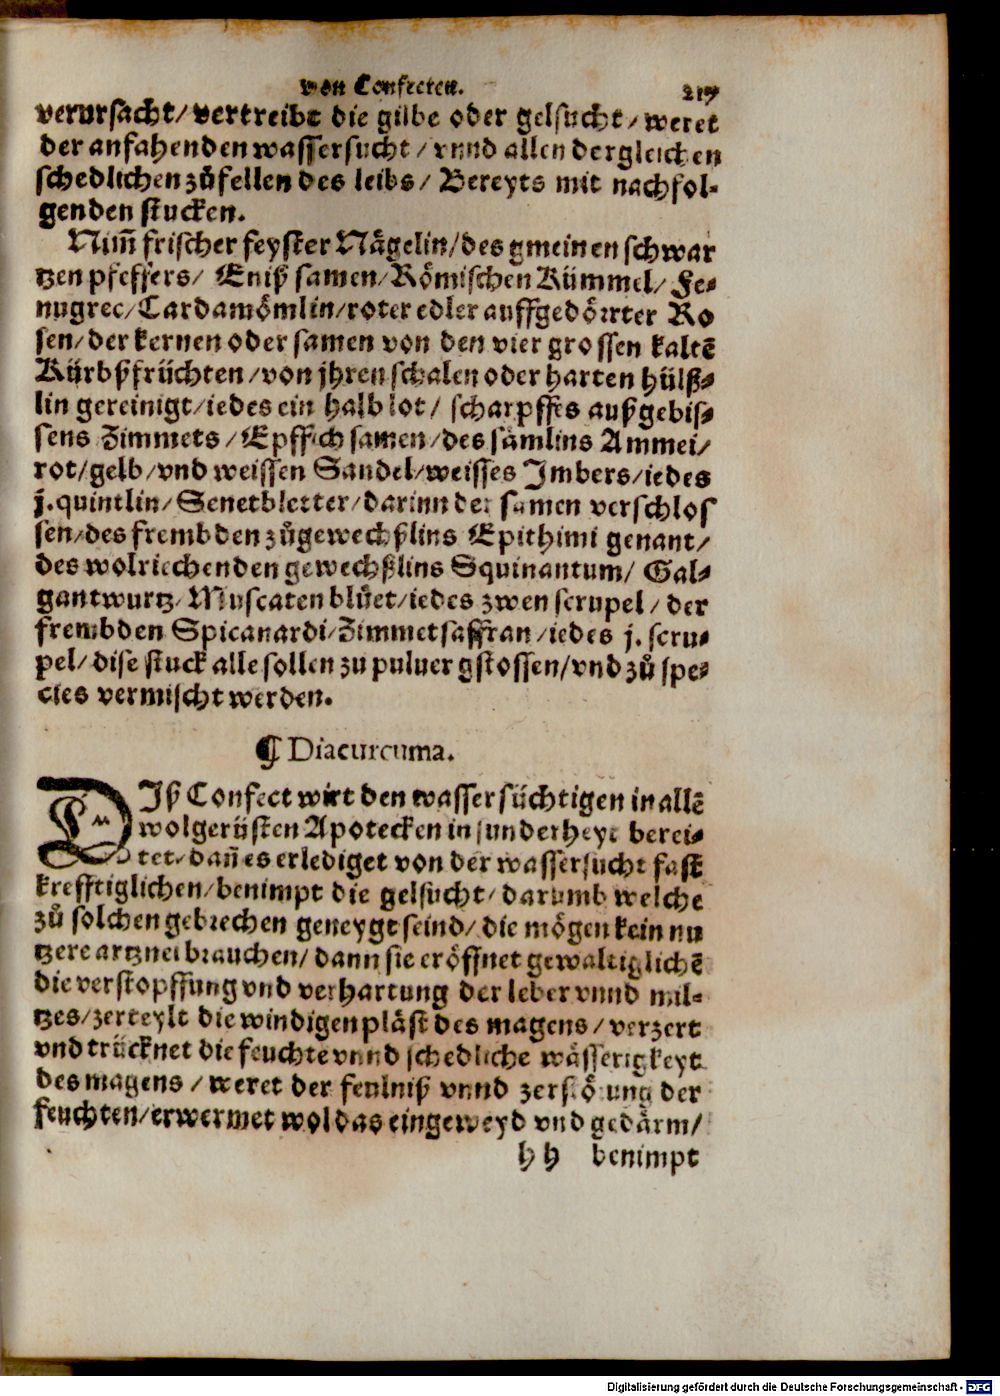 von Confecten. 217
verursacht/ vertreibt die gilbe oder gelsucht/ weret
der anfahenden wassersucht/ vnnd allen dergleichen
schedlichen zůfellen des leibs/ Bereyts mit nachfol⸗
genden stucken.
Nim̃ frischer feyster Nägelin/ des gmeinen schwar
tzen pfeffers/ Eniß samen/ Römischen Kümmel/ Fe⸗
nugrec/ Cardamömlin/ roter edler auffgedörrter Ro
sen/ der kernen oder samen von den vier grossen kaltẽ
Kürbßfrüchten/ von jhren schalen oder harten hülß⸗
lin gereinigt/ iedes ein halb lot/ scharpffes außgebis⸗
sens Zimmets/ Epffich samen/ des sämlins Ammei/
rot/ gelb/ vnd weissen Sandel/ weisses Imbers/ iedes
j. quintlin/ Senetbletter/ darinn der samen verschlos
sen/ des frembden zůgewechßlins Epithimi genant/
des wolriechenden gewechßlins Squinantum/ Gal⸗
gantwurtz/ Muscaten blůet/ iedes zwen scrupel/ der
frembden Spicanardi/ Zimmetsaffran/ iedes j. scru⸗
pel/ dise stuck alle sollen zu puluer gstossen/ vnd zů spe⸗
cies vermischt werden.
¶ Diacurcuma.
DIß Confect wirt den wassersüchtigen in allẽ
wolgerüsten Apotecken in sunderheyt berei⸗
tet/ dañ es erlediget von der wassersucht fast
krefftiglichen/ benimpt die gelsucht/ darumb welche
zů solchen gebrechen geneygt seind/ die mögen kein nu
tzere artznei brauchen/ dann sie eröffnet gewaltiglichẽ
die verstopffung vnd verhartung der leber vnnd mil⸗
tzes/ zerteylt die windigen pläst des magens/ verzert
vnd trücknet die feuchte vnnd schedliche wässerigkeyt
des magens/ weret der feulniß vnnd zerstörung der
feuchten/ erwermet wol das eingeweyd vnd gedärm/
h h benimpt
Digitalisierung gefördert durch die Deutsche Forschungsgemeinschaft - DFG